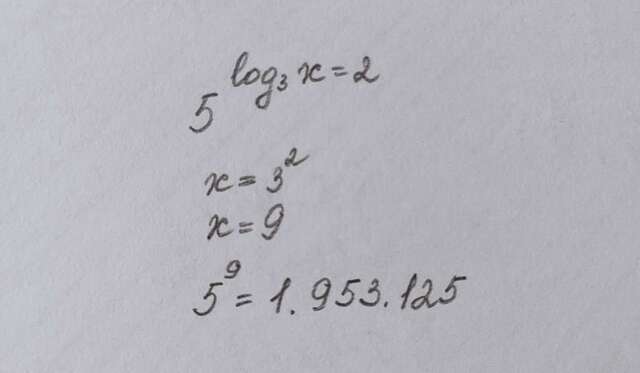 5^{log₃ x = 2}
x = 3²
x = 9
5⁹ = 1.953.125